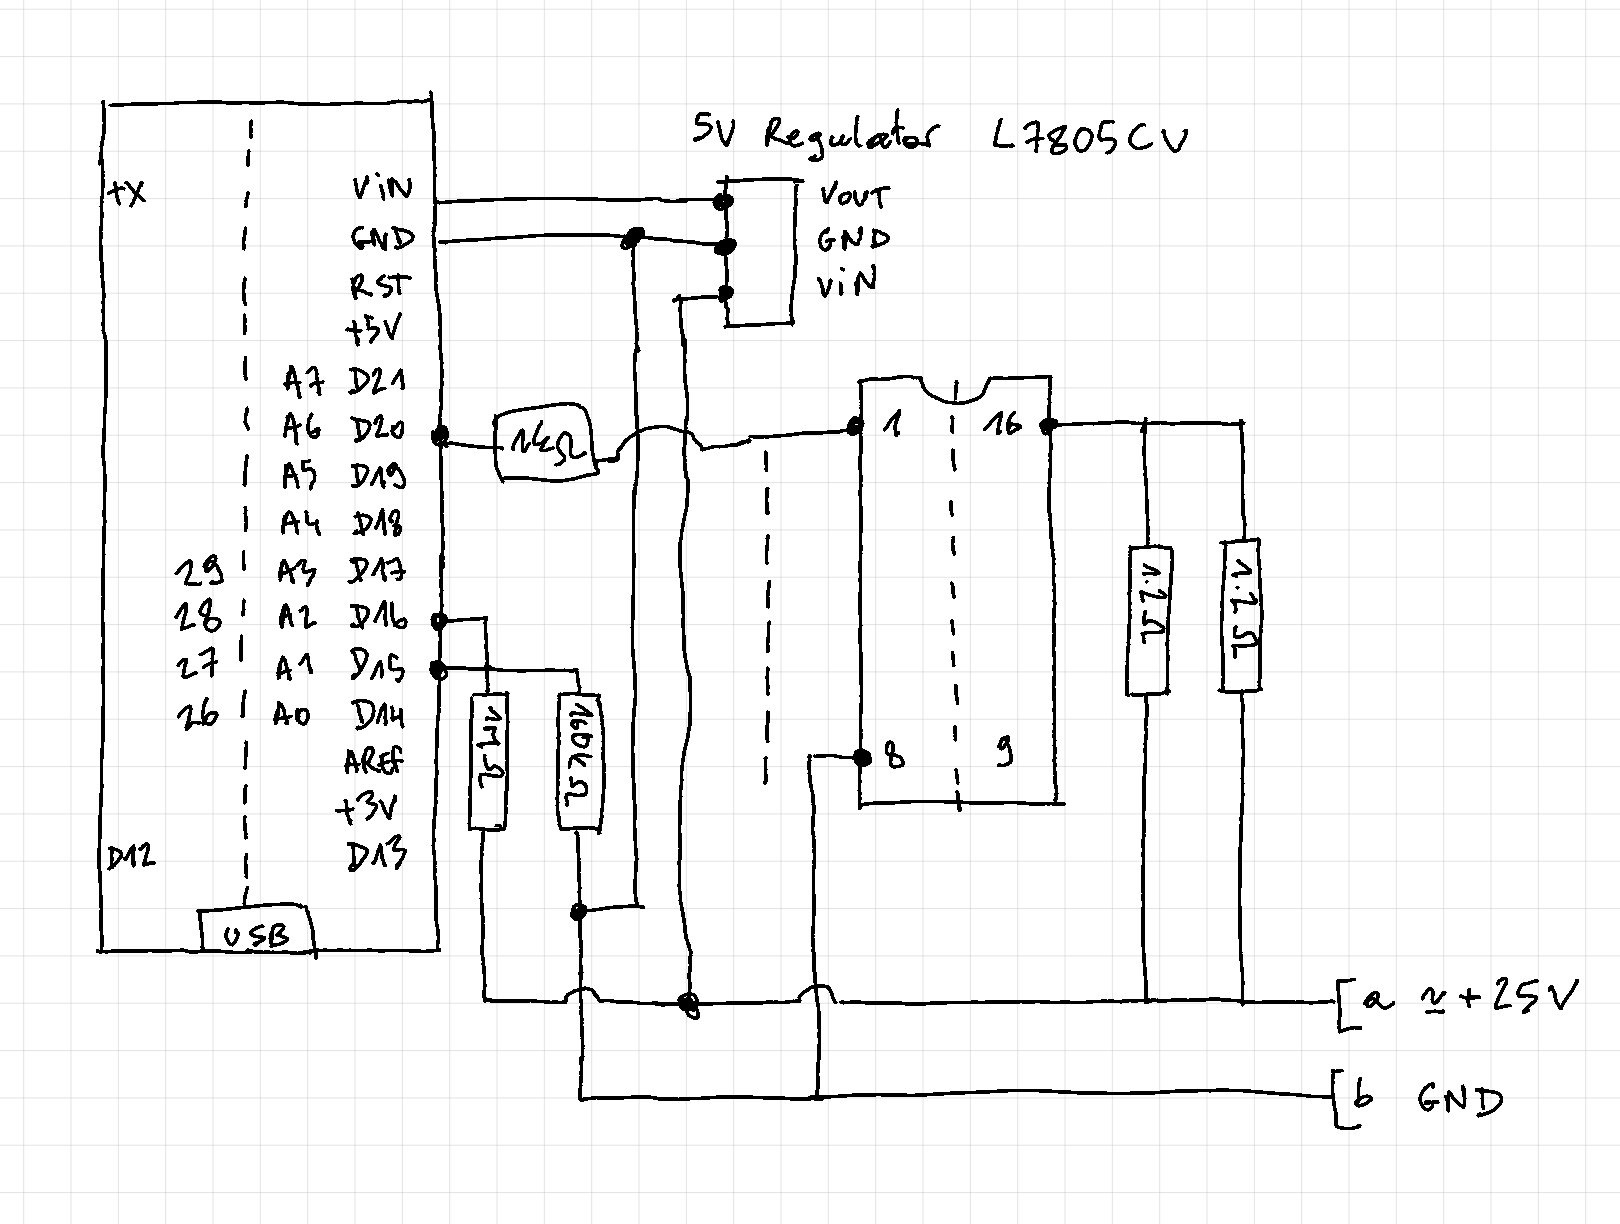 5V Regulator L7805CV
+X
ViN
VOUT
GND
GND
RST
ViN
+5V
A7 D21
A6 D20
1kΩ
1
16
A5 D19
A4 D18
29 A3 D17
28 A2 D16
27 A1 D15
26 A0 D14
1MΩ
160kΩ
1.2Ω
1.2Ω
AREF
+3V
8
9
D12
D13
USB
a ≃ +25V
b GND